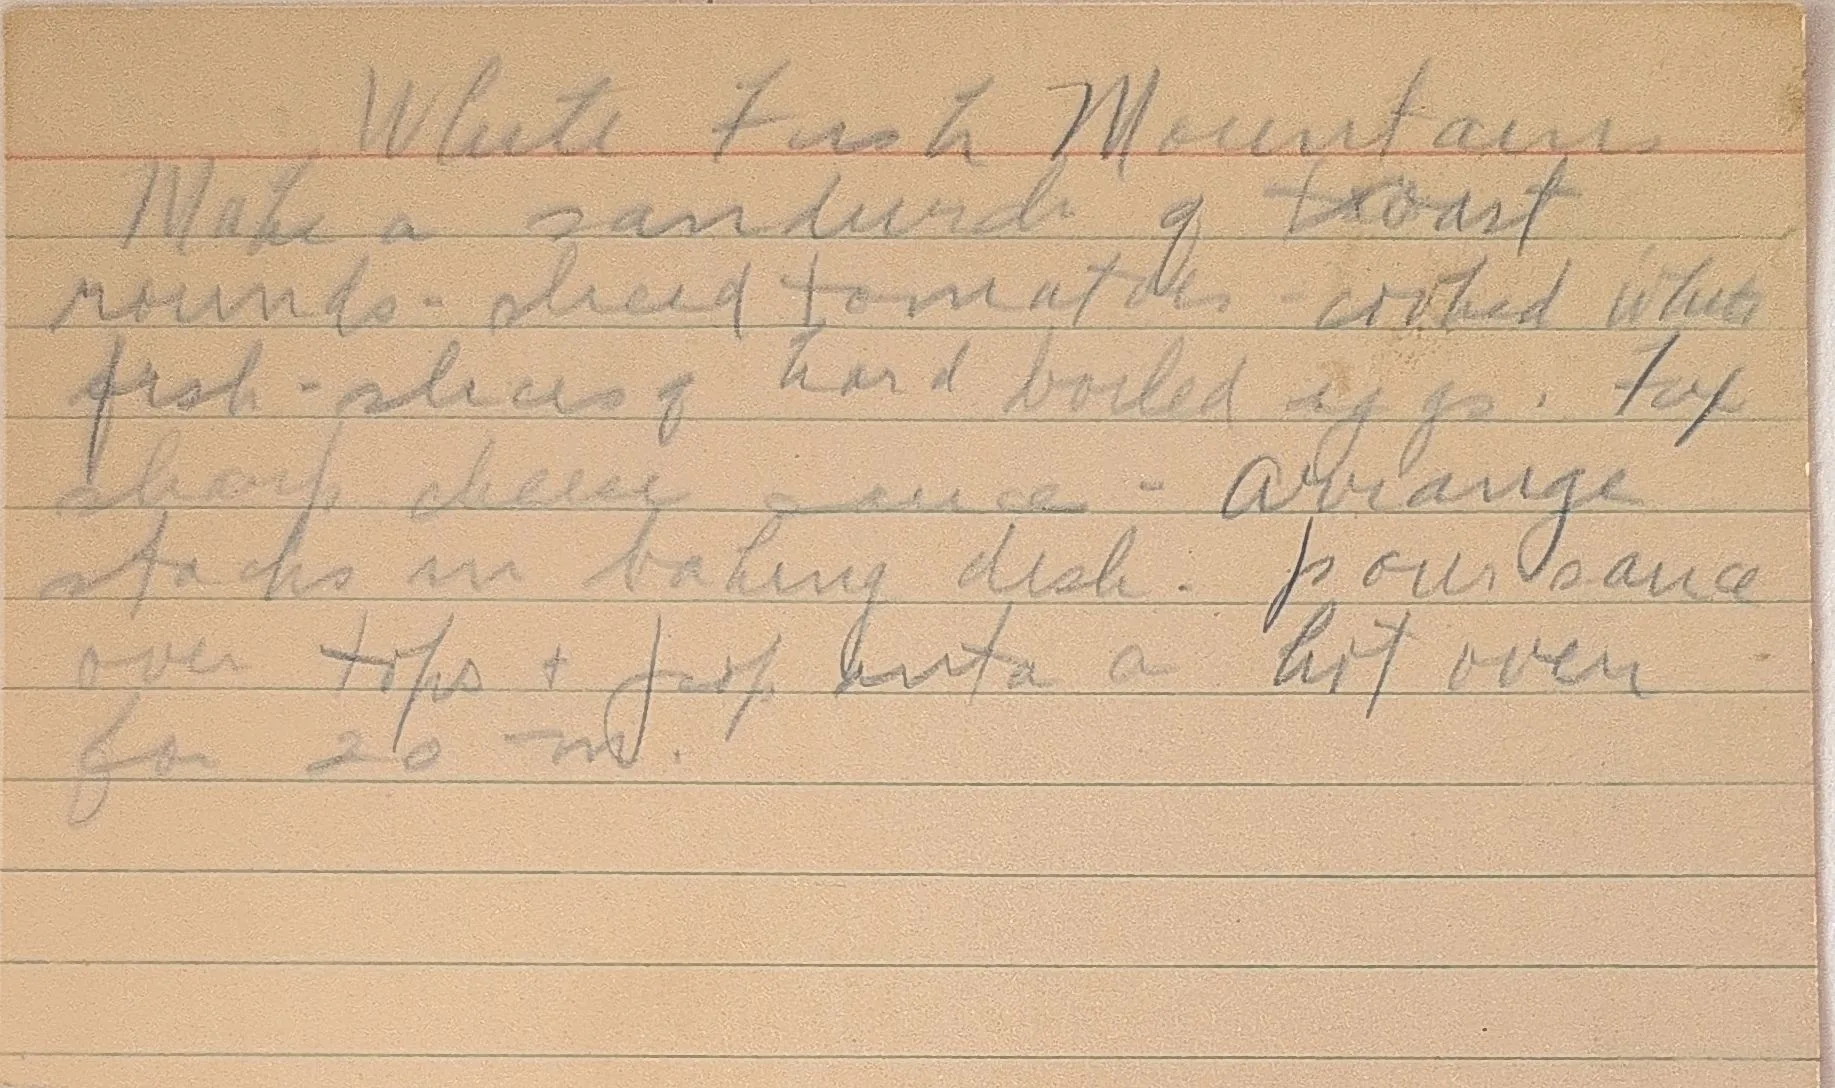 White Fish Mountain
Make a sandwich of toast
rounds - sliced tomatoes - cooked white
fish - slices of hard boiled eggs. Top
sharp cheese sauce - Arrange
stacks in baking dish. pour sauce
over tops + pop into a hot oven
for 20 m.